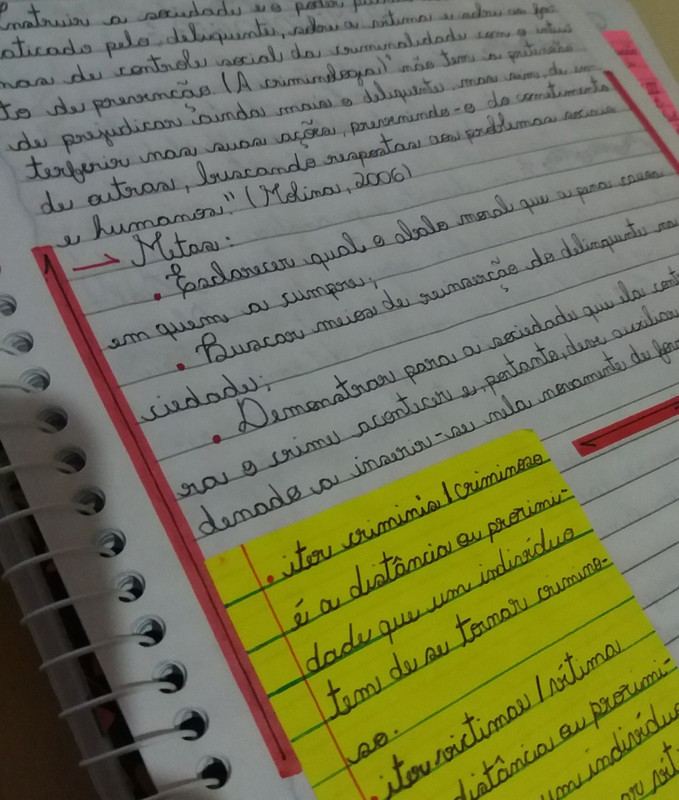 instruir a sociedade e o poder
aticado pelo delinquente, sobre a vitima e sobre os
mas de controle social da criminalidade com o intui
to de prevenção. (A criminologia) "não tem a pretensão
de prejudicar ainda mais o delinquente, mas sim, de in
terferir nas suas ações, prevenindo-o do cometimento
de outras, buscando respostas aos problemas sociais
e humanos." (Molina, 2006)
→ Metas:
• Esclarecer qual o abalo moral que a pena causa
em quem a cumpre;
• Buscar meios de reinserção do delinquente na
ciedade;
• Demonstrar para a sociedade que ela
ra o crime acontecer e, portanto, deve auxiliar
denado a inserir-se nela novamente de
• iter criminis/criminoso
é a distância ou proximi-
dade que um indivíduo
tem de se tornar crimino-
so.
• iter victimae/vítima
distância ou proximi-
um indivíduo